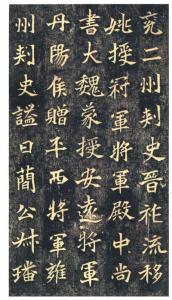 兗二州刾史晉祚流移
姚授冠軍將軍殿中尚
書大魏蒙授安遠將軍
丹陽侯贈平西將軍雍
州刾史謚曰蕳公叔璠